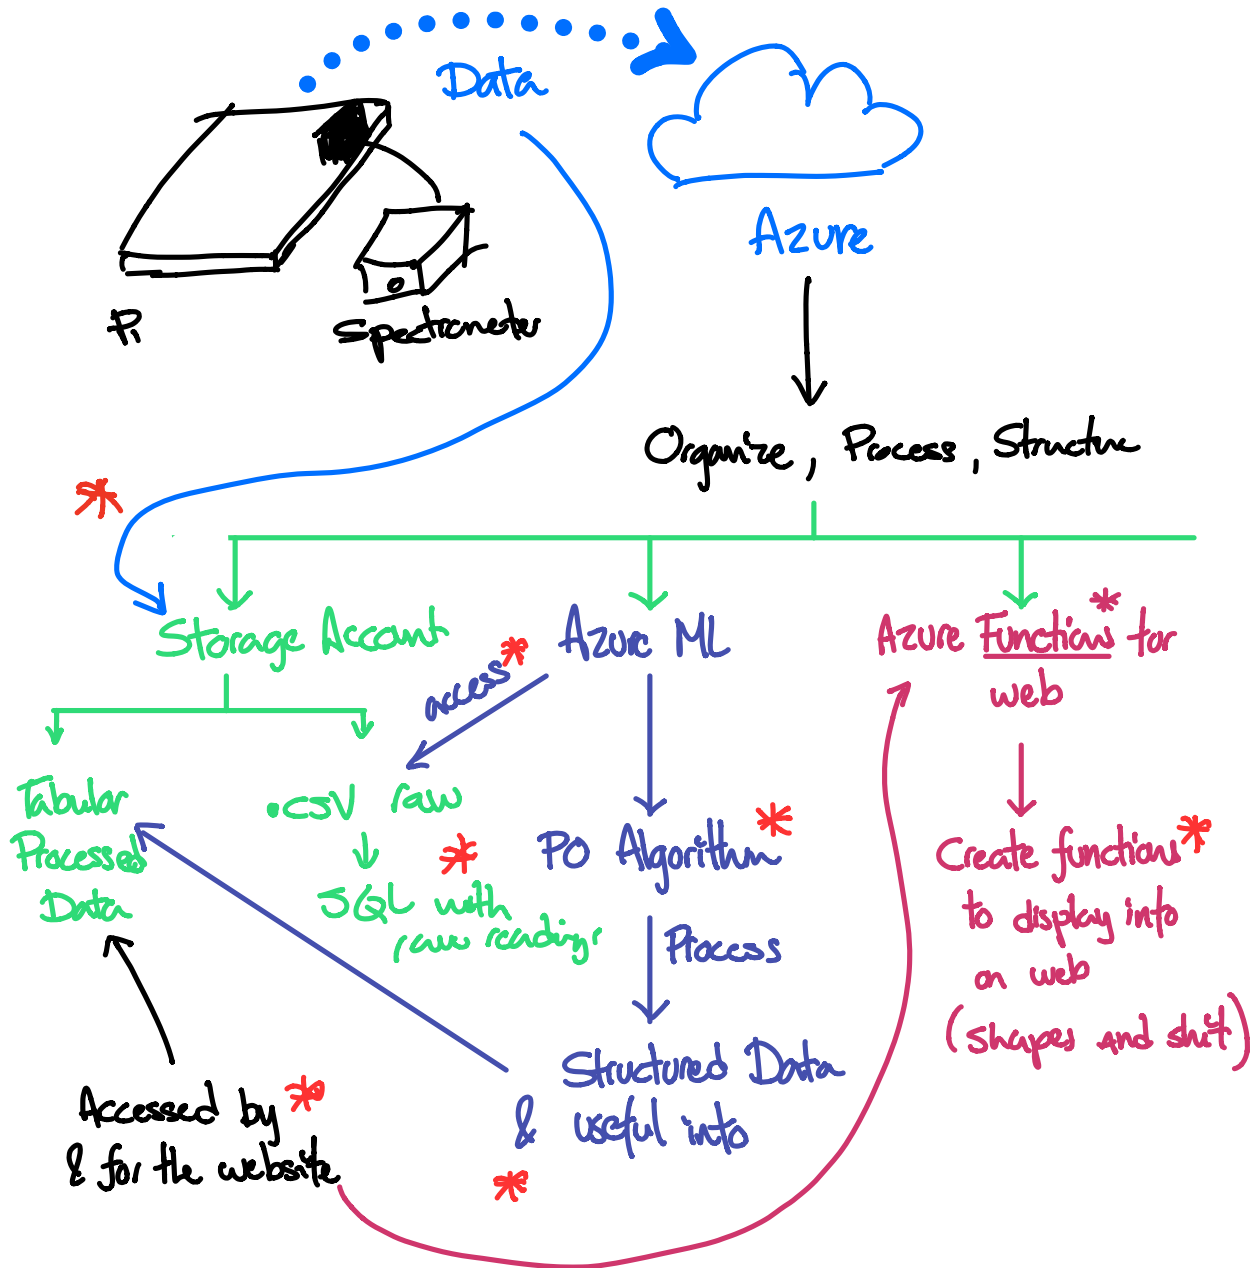 Data
Azure
Pi
Spectrometer
Organize, Process, Structure
Storage Account
Azure ML
Azure Functions for
web
access
Tabular
Processed
Data
.csv raw
SQL with
raw readings
PO Algorithm
Process
Structured Data
& useful info
Create functions
to display info
on web
(shapes and shit)
Accessed by
& for the website